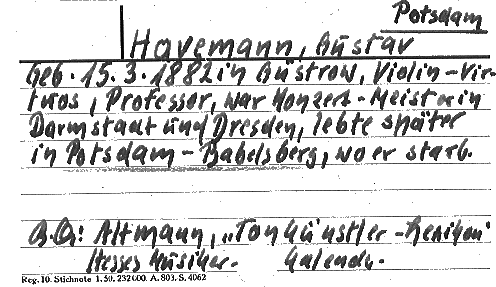 Potsdam
Havemann, Gustav
Geb. 15.3.1882 in Güstrow, Violin-Vir-
tuos, Professor, war Konzert-Meister in
Darmstadt und Dresden, lebte später
in Potsdam-Babelsberg, wo er starb.
B.Q.: Altmann, „Tonkünstler-Lexikon"
Hesses Musiker- Kalender.
Reg. 10. Stichnote 1. 50. 232000. A. 803. S. 4062